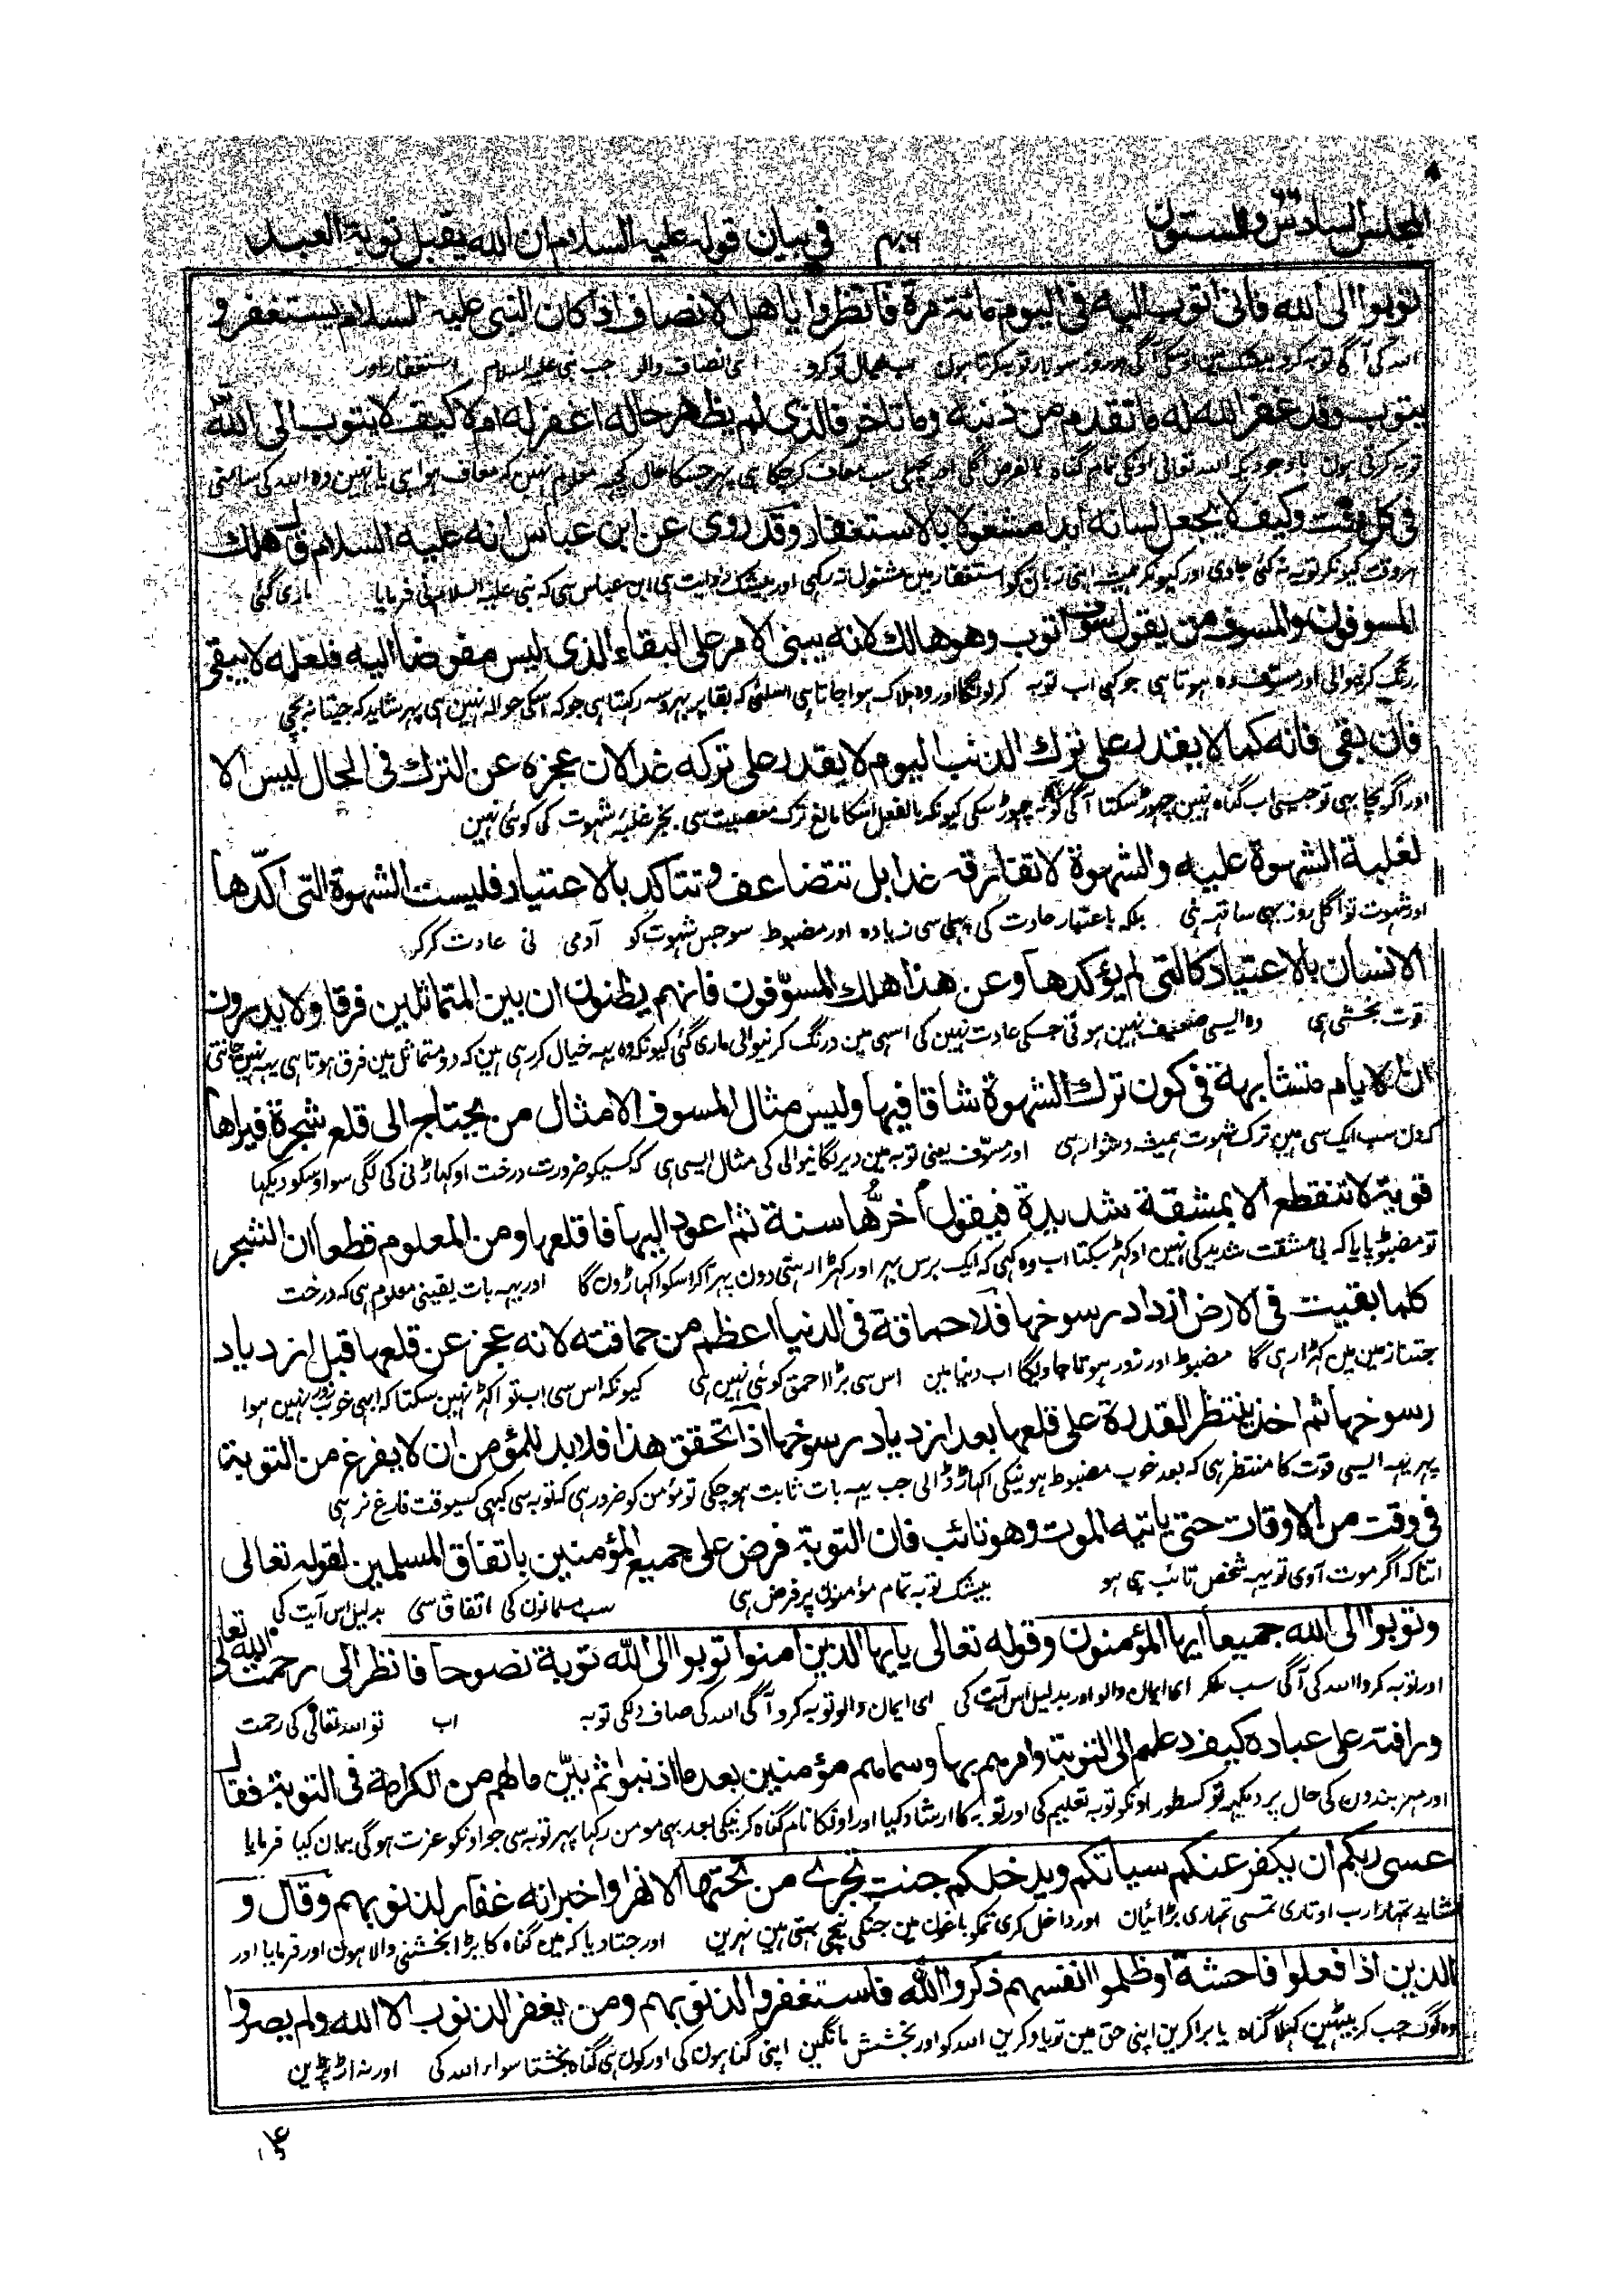 المجلس السادس والستون ۴۰۶ في بيان قوله عليه السلام ان الله يقبل توبة العبد
توبوا الى الله فانى اتوب اليه فى اليوم مائة مرة فانظروا يا اهل الانصاف اذا كان النبى عليه السلام يستغفر و
الله کی آگی توبہ کرو بیشک مین اوسکی آگی ہر روز سو بار توبہ کرتا ہون اب خیال تو کرو ای انصاف والو جب نبی علیہ السلام استغفار اور
يتوب وقد غفر الله له ما تقدم من ذنبه وما تاخر فالذى لم يظهر حاله اغفر له ام لا كيف لا يتوب الى الله
توبہ کرتی ہون باوجودیکہ اللہ تعالی اونکی تمام گناہ بالفرض اگلی اور پچھلی سب معاف کر چکا ہی پہر جسکا حال کچہہ معلوم نہین کہ معاف ہوا ہی یا نہین وہ اللہ کی سامنی
فى كل وقت وكيف لا يجعل لسانه ابدا مشغولا بالاستغفار وقد روى عن ابن عباس انه عليه السلام قال هلك
ہر وقت کیونکر توبہ نہ کئی جاوی اور کیونکر ہمیشہ اپنی زبان کو استغفار مین مشغول نہ رکہی اور بیشک روایت ہی ابن عباس سی کہ نبی علیہ السلام نی فرمایا ماری گئی
المسوفون والمسوف من يقول سوف اتوب وهو هالك لانه يبنى الامر على البقاء الذى ليس مفوضا اليه فلعله لا يبقى
درنگ کرنیوالی اور مسوف وہ ہوتا ہی جو کہی اب توبہ کر لونگا اور وہ ہلاک ہوا جاتا ہی اسلئی کہ بقا پر بہروسہ رکہتا ہی جو کہ اسکی حوالہ نہین ہی پہر شاید کہ جیتا نہ بچی
فان بقى فانه كما لا يقدر على ترك الذنب اليوم لا يقدر على تركه غدا لان عجزه عن الترك فى الحال ليس الا
اور اگر بچا بہی تو جیسی اب گناہ نہین چہوڑ سکتا آگی کو نہ چہوڑ سکی کیونکہ بالفعل اسکا مانع ترک معصیت سی بجز غلبئہ شہوت کی کوئی نہین
لغلبة الشهوة عليه والشهوة لا تفارقه غدا بل تتضاعف وتتاكد بالاعتياد فليست الشهوة التى اكّدها
اور شہوت تو اگلی روز بہی ساتہہ ہی بلکہ باعتبار عادت کی پہلی سی زیادہ اور مضبوط سو جس شہوت کو آدمی نی عادت کر کر
الانسان بالاعتياد كالتى لم يؤكدها وعن هذا هلك المسوّفون فانهم يظنون ان بين المتماثلين فرقا ولا يدرون
قوت بخشی ہی وہ ایسی ضعیف نہین ہوتی جسکی عادت نہین کی اسہی مین درنگ کرنیوالی ماری گئی کیونکہ وہ یہہ خیال کر رہی ہین کہ دو متماثل مین فرق ہوتا ہی یہہ نہین جانتی
ان الايام متشابهة فى كون ترك الشهوة شاقا فيها وليس مثال المسوف الا مثال من يحتاج الى قلع شجرة فيراها
کہ دن سب ایک سی ہین ترک شہوت ہمیشہ دشوار ہی اور مسوّف یعنی توبہ مین دیر لگانیوالی کی مثال ایسی ہی کہ کسیکو ضرورت درخت اوکہاڑنی کی لگی سو اوسکو دیکہا
قوية لا تنقطع الا بمشقة شديدة فيقول اخرّها سنة ثم اعود اليها فاقلعها ومن المعلوم قطعا ان الشجر
تو مضبوط پایا کہ بی مشقت شدید کی نہین اوکہڑ سکتا اب وہ کہی کہ ایک برس پہر اور کہڑا رہنی دون پہر آکر اسکو اکہاڑون گا اور یہہ بات یقینی معلوم ہی کہ درخت
كلما بقيت فى الارض ازداد رسوخها فلا حماقة فى الدنيا اعظم من حماقته لانه عجز عن قلعها قبل ازدياد
جتنا زمین مین کہڑا رہی گا مضبوط اور زور ہوتا جاویگا اب دنیا مین اس سی بڑا احمق کوئی نہین ہی کیونکہ اس سی اب تو اکہڑ نہین سکتا کہ ابہی خوب زور نہین ہوا
رسوخها ثم اخذ ينتظر القدرة على قلعها بعد ازدياد رسوخها اذا تحقق هذا فلا بد للمؤمن ان لا يفرغ من التوبة
پہر یہہ ایسی قوت کا منتظر ہی کہ بعد خوب مضبوط ہونیکی اکہاڑ ڈالی جب یہہ بات ثابت ہو چکی تو مؤمن کو ضرور ہی کہ توبہ سی کبہی کسیوقت فارغ نہ رہی
فى وقت من الاوقات حتى ياتيه الموت وهو تائب فان التوبة فرض على جميع المؤمنين باتفاق المسلمين لقوله تعالى
اتنا کہ اگر موت آوی تو یہہ شخص تائب ہی ہو بیشک توبہ تمام مؤمنون پر فرض ہی سب مسلمانون کی اتفاق سی بدلیل اس آیت کی
وتوبوا الى الله جميعا ايها المؤمنون وقوله تعالى يايها الذين امنوا توبوا الى الله توبة نصوحا فانظر الى رحمة الله تعالى
اور توبہ کرو اللہ کی آگی سب ملکر ای ایمان والو اور بدلیل اس آیت کی ای ایمان والو توبہ کرو آگی اللہ کی صاف دلکی توبہ اب تو اللہ تعالی کی رحمت
ورافته على عباده كيف دعلهم الى التوبة وامرهم بها وسماهم مؤمنين بعد ما اذنبوا ثم بيّن ما لهم من الكرامة فى التوبة فقال
اور مہر بندون کی حال پر دیکہہ تو کسطور اونکو توبہ تعلیم کی اور توبہ کا ارشاد کیا اور اونکا نام گناہ کرنیکی بعد بہی مومن رکہا پہر توبہ سی جو اونکو عزت ہوگی بیان کیا فرمایا
عسى ربكم ان يكفر عنكم سياتكم ويدخلكم جنت تجرے من تحتها الانهار واخبر انه غفار لذنوبهم وقال و
شاید تمہارا رب اوتاری تمسی تمہاری برائیان اور داخل کری تمکو باغون مین جنکی نیچی بہتی ہین نہرین اور جتا دیا کہ مین گناہ کا بڑا بخشنی والا ہون اور فرمایا اور
الذين اذا فعلوا فاحشة او ظلموا انفسهم ذكروا الله فاستغفروا لذنوبهم ومن يغفر الذنوب الا الله ولم يصروا
وہ لوگ جب کر بیٹہین کہلا گناہ یا برا کرین اپنی حق مین تو یاد کرین اللہ کو اور بخشش مانگین اپنی گناہون کی اور کون ہی گناہ بخشتا سواء اللہ کی اور نہ اڑ پڑین